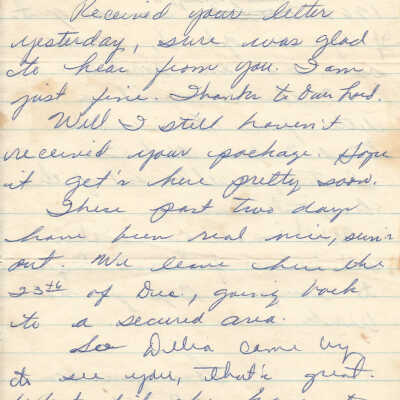 Received your letter
yesterday, sure was glad
to hear from you. I am
just fine. Thanks to Our Lord.
Will I still haven't
received your package. Hope
it get's here pretty soon.
These past two days
have been real nice, sun's
out. We leave here the
23th of Dec, going back
to a secured area.
So Della came by
to see you, that's great.